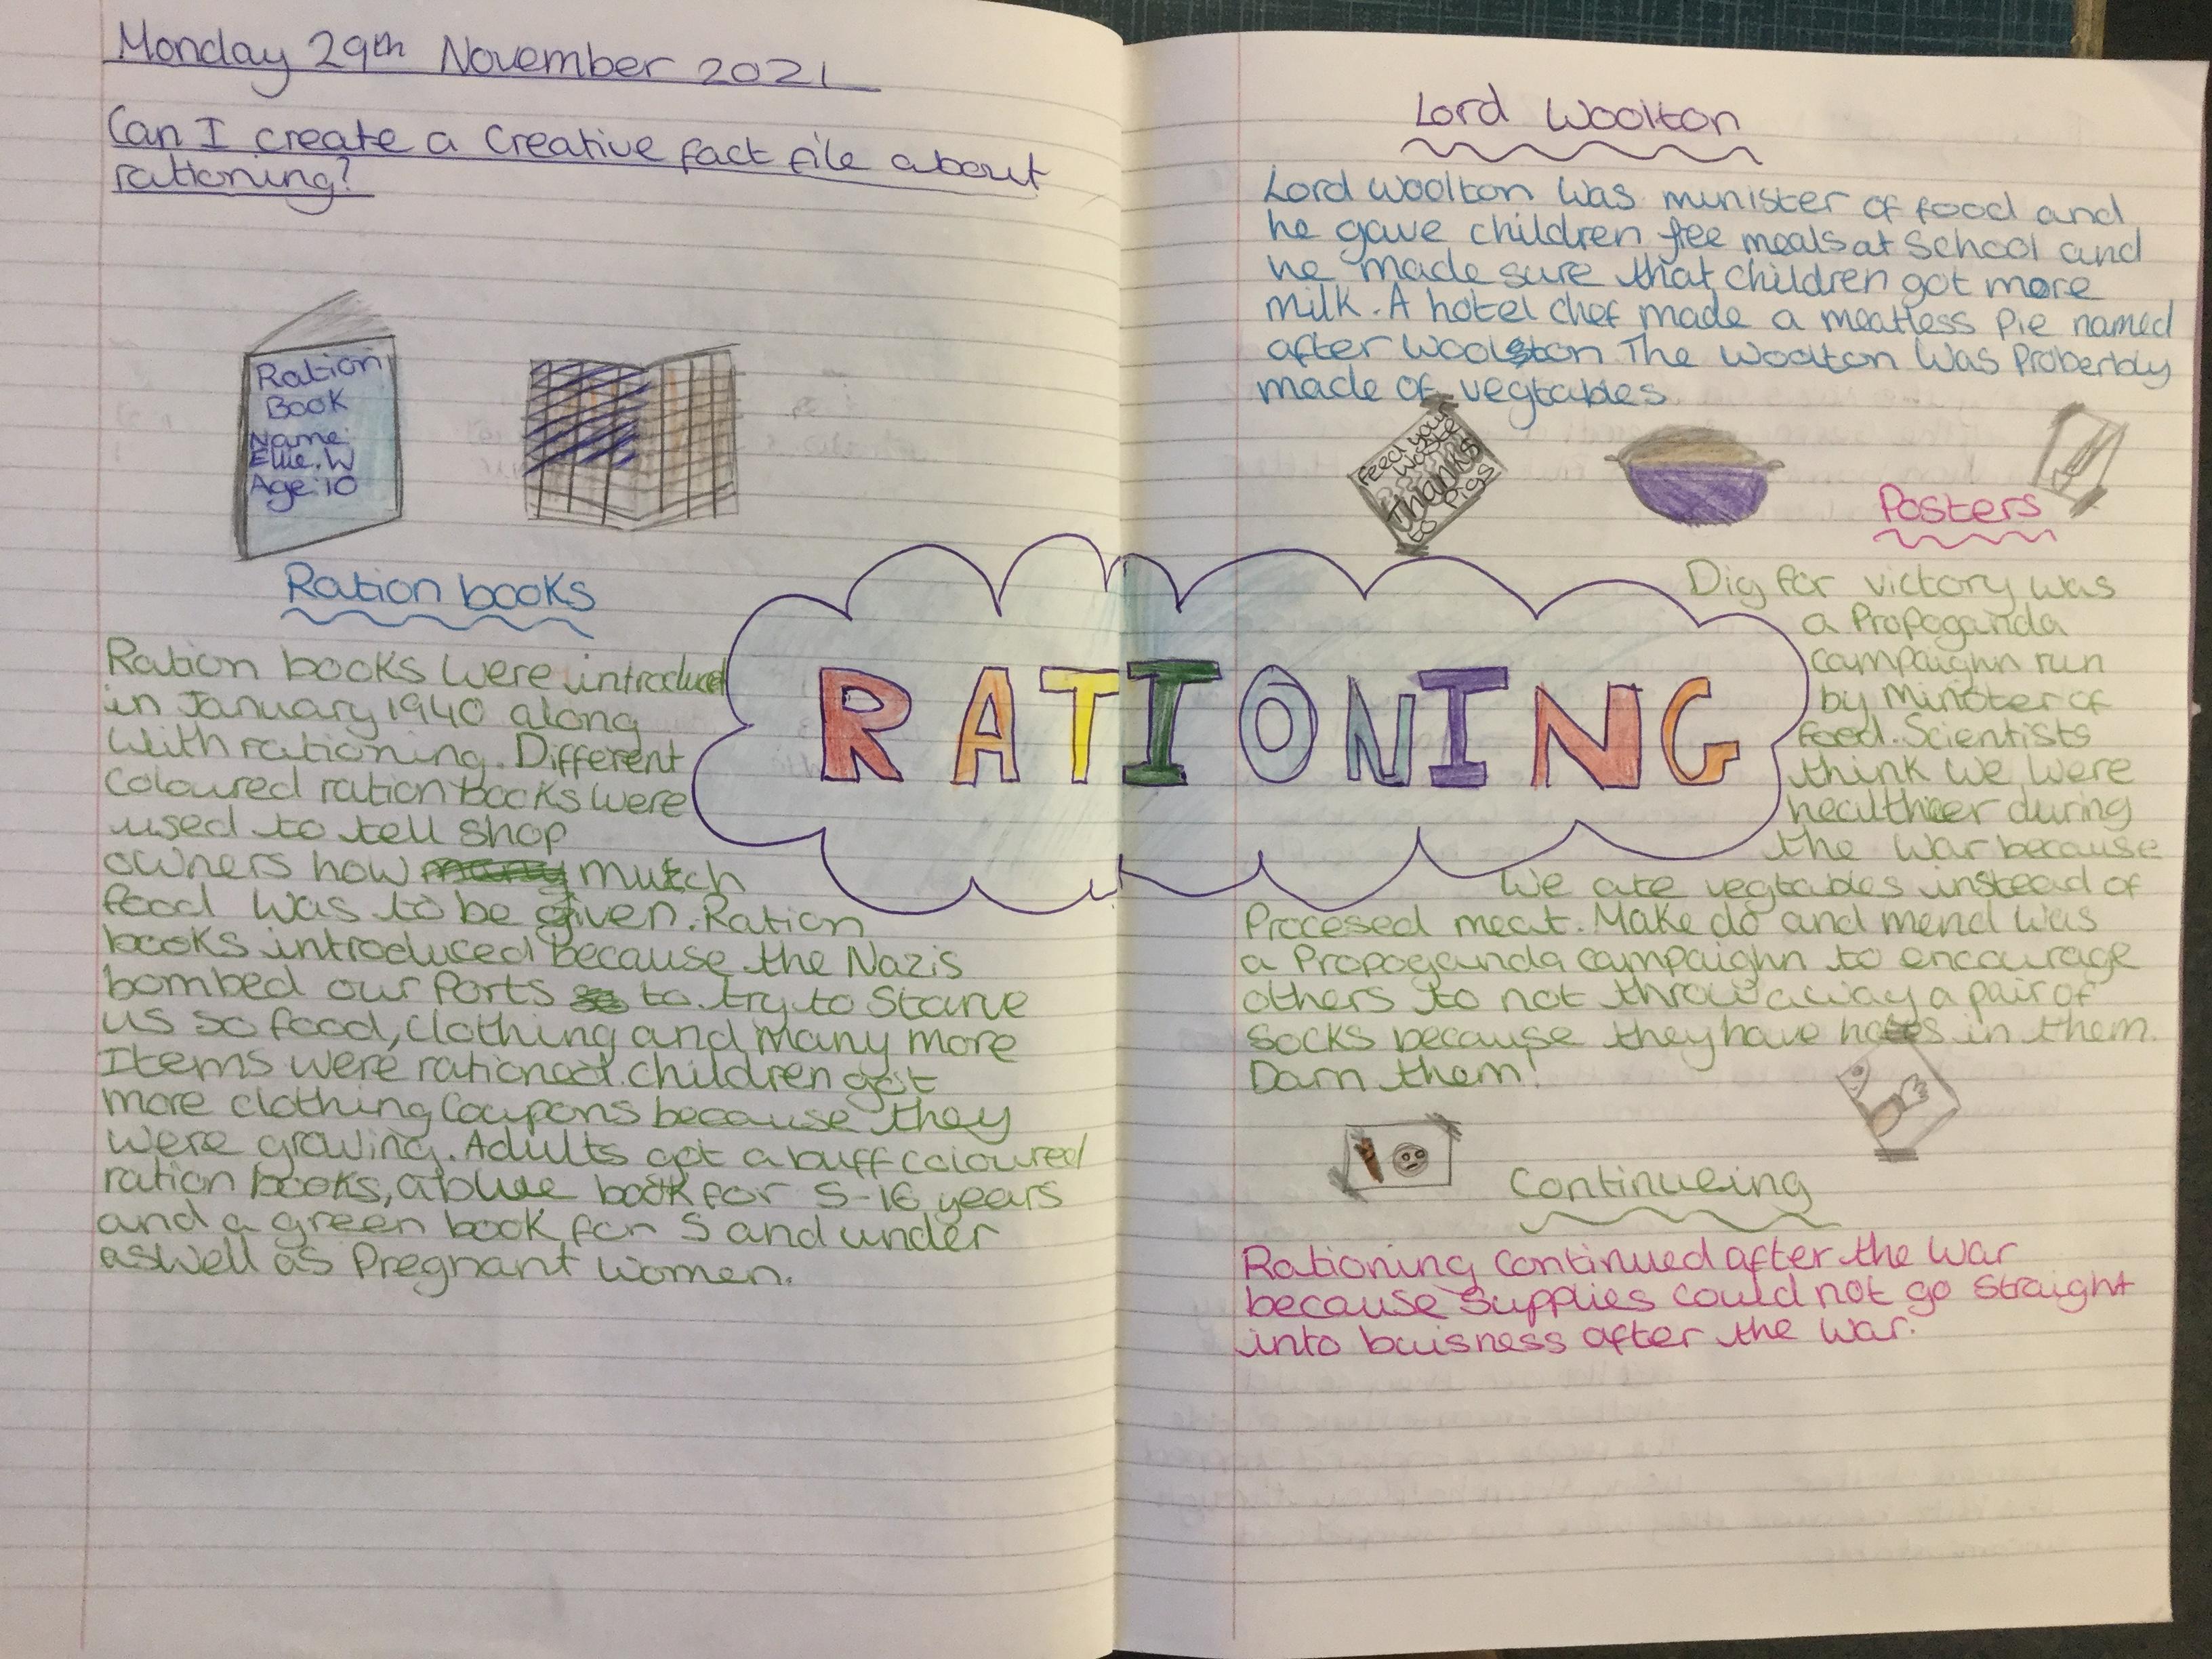 Monday 29th November 2021
Can I create a creative fact file about
rationing?
Ration
Book
Name:
Ellie.W
Age:10
Ration books
Ration books were introduced
in January 1940 along
with rationing. Different
coloured ration books were
used to tell shop
owners how many mutch
food was to be given. Ration
books introduced because the Nazis
bombed our Ports to try to starve
us so food, clothing and many more
Items were rationed. children got
more clothing coupons because they
were growing. Adults got a buff coloured
ration books, a blue book for 5-16 years
and a green book for 5 and under
aswell as Pregnant women.
RATIONING
Lord Woolton
Lord Woolton was minister of food and
he gave children free meals at school and
he made sure that children got more
milk. A hotel chef made a meatless pie named
after Woolston The Woolton was Proberbly
made of vegtables.
Feed your
Waste
Thanks
to Pigs
Posters
Dig for victory was
a Propoganda
campaighn run
by Minister of
food. Scientists
think we were
healthier during
the war because
we ate vegtables instead of
Procesed meat. Make do and mend was
a Propoganda campaighn to encourage
others to not throw away a pair of
socks because they have holes in them.
Darn them!
Continueing
Rationing continued after the war
because supplies could not go straight
into buisness after the war.